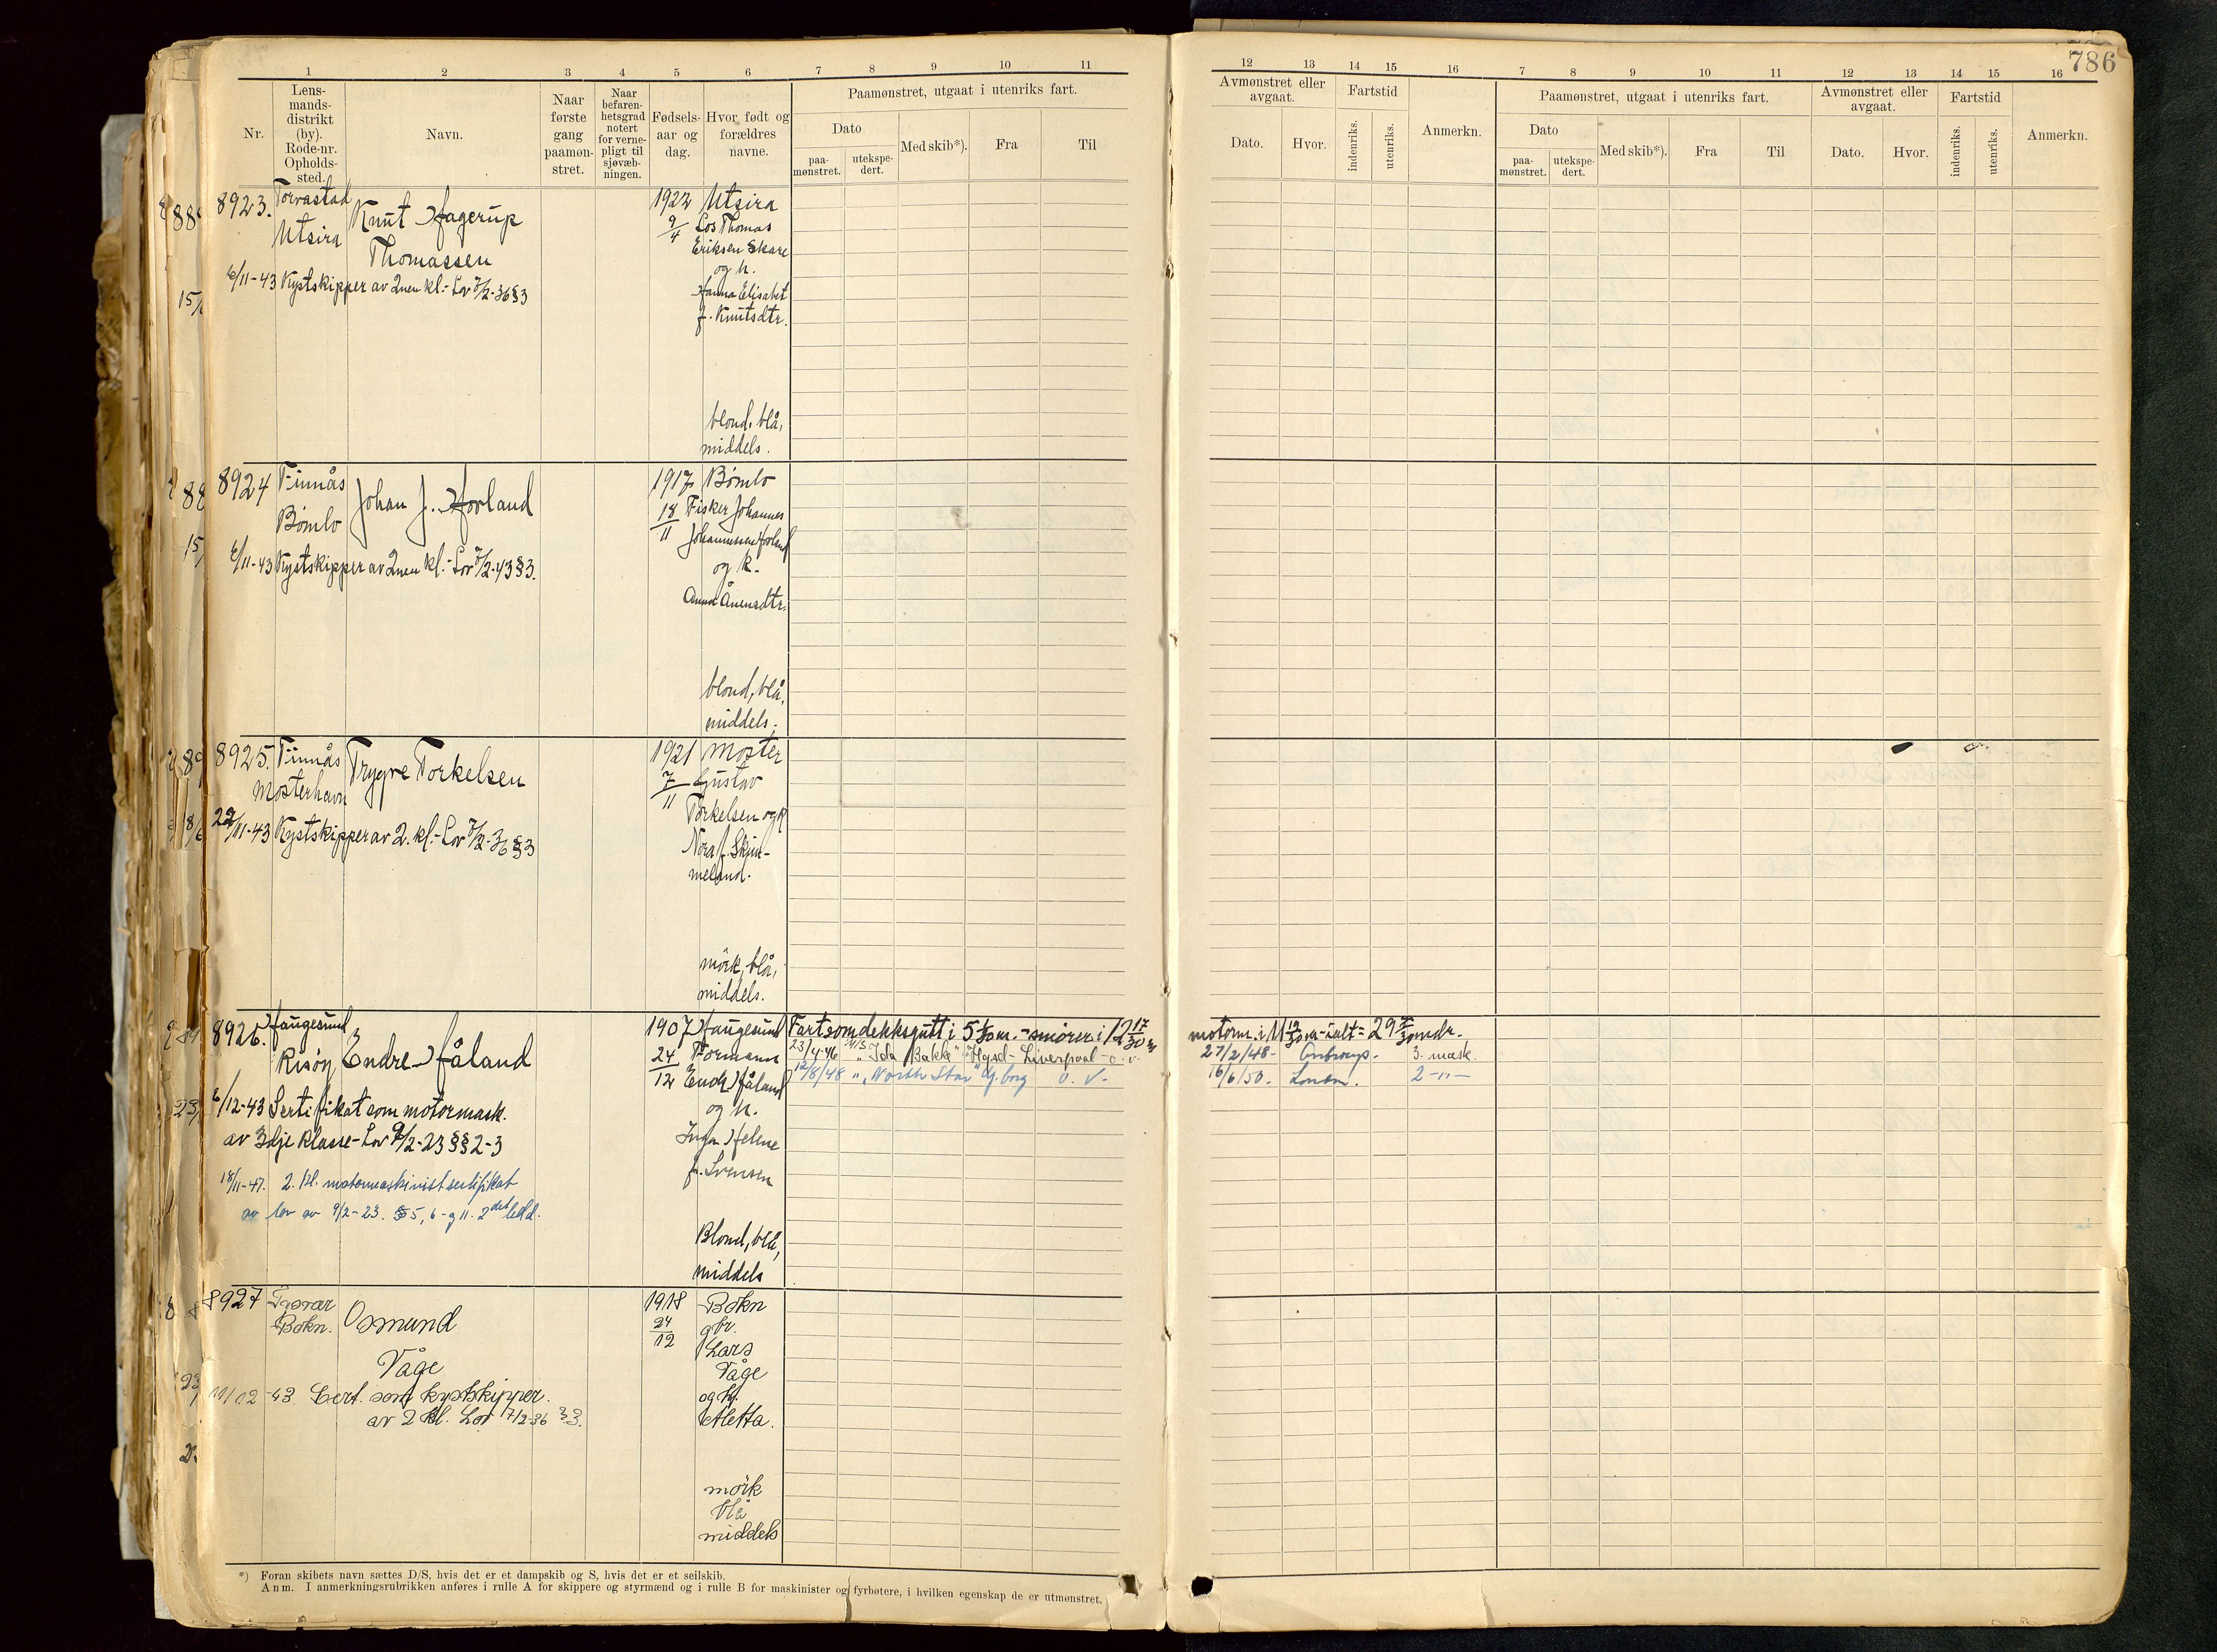 786
1 2 3 4 5 6 7 8 9 10 11
Nr.
Lens-
mands-
distrikt
(by).
Rode-nr.
Opholds-
sted.
Navn.
Naar
første
gang
paamøn-
stret.
Naar
befaren-
hetsgrad
notert
for verne-
pligt til
sjøvæb-
ningen.
Fødsels-
aar og
dag.
Hvor født og
forældres
navne.
Paamønstret, utgaat i utenriks fart.
Dato
paa-
mønstret.
utekspe-
dert.
Med skib*).
Fra
Til
12 13 14 15 16 7 8 9 10 11 12 13 14 15 16
Avmønstret eller
avgaat.
Dato.
Hvor.
Fartstid
indenriks.
utenriks.
Anmerkn.
Paamønstret, utgaat i utenriks fart.
Dato
paa-
mønstret.
utekspe-
dert.
Med skib*).
Fra
Til
Avmønstret eller
avgaat.
Dato.
Hvor.
Fartstid
indenriks.
utenriks.
Anmerkn.
8923.
Torvastad
Utsira
Knut Hagerup
Thomassen
6/11-43 Kystskipper av 2nen kl.- Lov 7/2-36 § 3
1922
9/4
Utsira
Los Thomas
Eriksen Skare
og h.
Hanna Elisabet
f. Knutsdtr.
blond, blå,
middels.
8924
Finnås
Bömlo
Johan J. Hovland
6/11-43 Kystskipper av 2nen kl.- Lov 7/2-43 § 3.
1917
18/11
Bömlo
Fisker Johannes
Johannessen Hovland
og k.
Anna Ånensdtr.
blond, blå,
middels.
8925.
Finnås
Mosterhavn
Trygve Torkelsen
22/11-43 Kystskipper av 2. kl.- Lov 7/2-36 § 3
1921
7/11
Moster
Gustav
Torkelsen og k
Nora f. Skim-
meland.
mörk, blå,
middels.
8926.
Haugesund
Risöy
Endre Håland
6/12-43 Sertifikat som motormask.
av 3dje klasse- Lov 9/2-23 §§ 2-3
18/11-47. 2. kl. motormaskinistsertifikat
av lov av 9/2-23. § 5, 6 og 11. 2det ledd.
1907
24/12
Haugesund
Formann
Endr. Håland
og h.
Inga Helene
f. Svensen
Blond, blå,
middels
Fart som dekksgutt i 5 m. - smörer i 12 17/30 m
motorm. i 11 m - ialt = 29 mdr.
23/4-46 M/S "Ida Bakke" Hgsd - Liverpool - o. v.
27/2/48 - Antwerp. - 3. mask.
12/8/48 " "North Star" G.borg o. v.
16/6/50. London. 2 - " -
8927
Tysvær
Bokn.
Osmund
Våge
11/12-43 Cert. som kystskipper.
av 2 kl. Lov 7/2-36 § 3.
1918
24/12
Bokn
gbr.
Lars
Våge
og h.
Aletta.
mörk
blå
middels
*) Foran skibets navn sættes D/S, hvis det er et dampskib og S, hvis det er et seilskib.
Anm. I anmerkningsrubrikken anføres i rulle A for skippere og styrmænd og i rulle B for maskinister og fyrbøtere, i hvilken egenskap de er utmønstret.